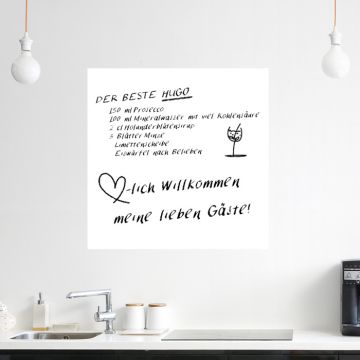 DER BESTE HUGO
150 ml Prosecco
100 ml Mineralwasser mit viel Kohlensäure
2 cl Holunderblütensirup
3 Blätter Minze
Limettenscheibe
Eiswürfel nach Belieben
-lich Willkommen
meine lieben Gäste!